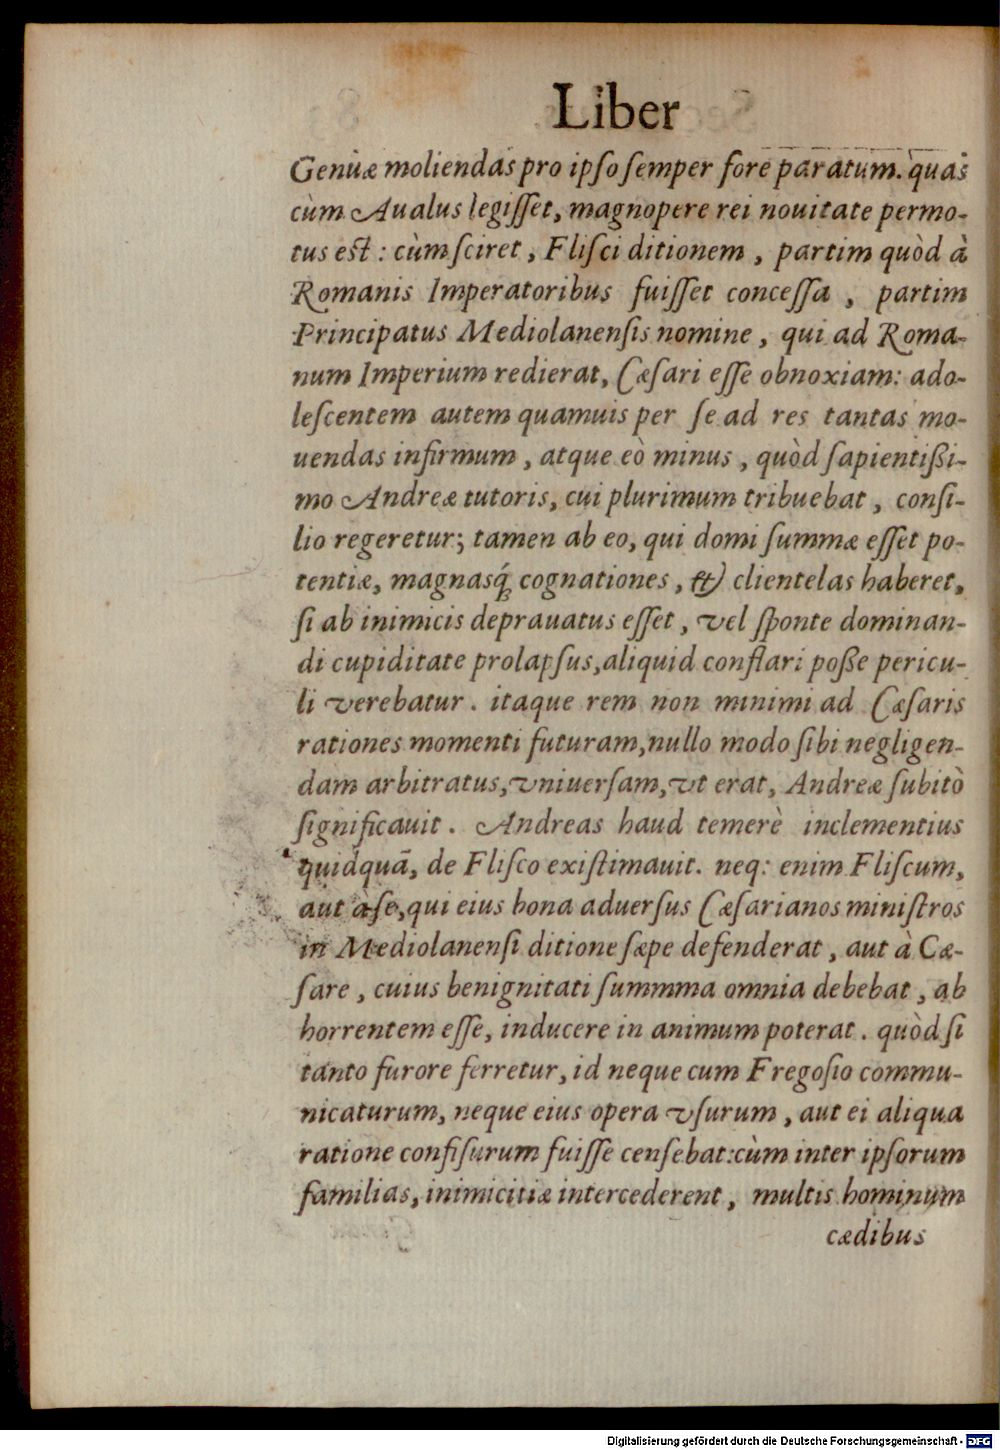 Liber
Genuæ moliendas pro ipso semper fore paratum. quas
cùm Aualus legisset, magnopere rei nouitate permo-
tus est: cùm sciret, Flisci ditionem, partim quòd à
Romanis Imperatoribus fuisset concessa, partim
Principatus Mediolanensis nomine, qui ad Roma-
num Imperium redierat, Cæsari esse obnoxiam: ado-
lescentem autem quamuis per se ad res tantas mo-
uendas infirmum, atque eò minus, quòd sapientißi-
mo Andreæ tutoris, cui plurimum tribuebat, consi-
lio regeretur; tamen ab eo, qui domi summæ esset po-
tentiæ, magnasq́; cognationes, & clientelas haberet,
si ab inimicis deprauatus esset, vel sponte dominan-
di cupiditate prolapsus, aliquid conflari poße pericu-
li verebatur. itaque rem non minimi ad Cæsaris
rationes momenti futuram, nullo modo sibi negligen-
dam arbitratus, vniuersam, vt erat, Andreæ subitò
significauit. Andreas haud temerè inclementius
quidquā, de Flisco existimauit. neq: enim Fliscum,
aut à se, qui eius bona aduersus Cæsarianos ministros
in Mediolanensi ditione sæpe defenderat, aut à Cæ-
sare, cuius benignitati summma omnia debebat, ab
horrentem esse, inducere in animum poterat. quòd si
tanto furore ferretur, id neque cum Fregosio commu-
nicaturum, neque eius opera vsurum, aut ei aliqua
ratione confisurum fuisse censebat: cùm inter ipsorum
familias, inimicitiæ intercederent, multis hominum
cædibus
Digitalisierung gefördert durch die Deutsche Forschungsgemeinschaft - DFG